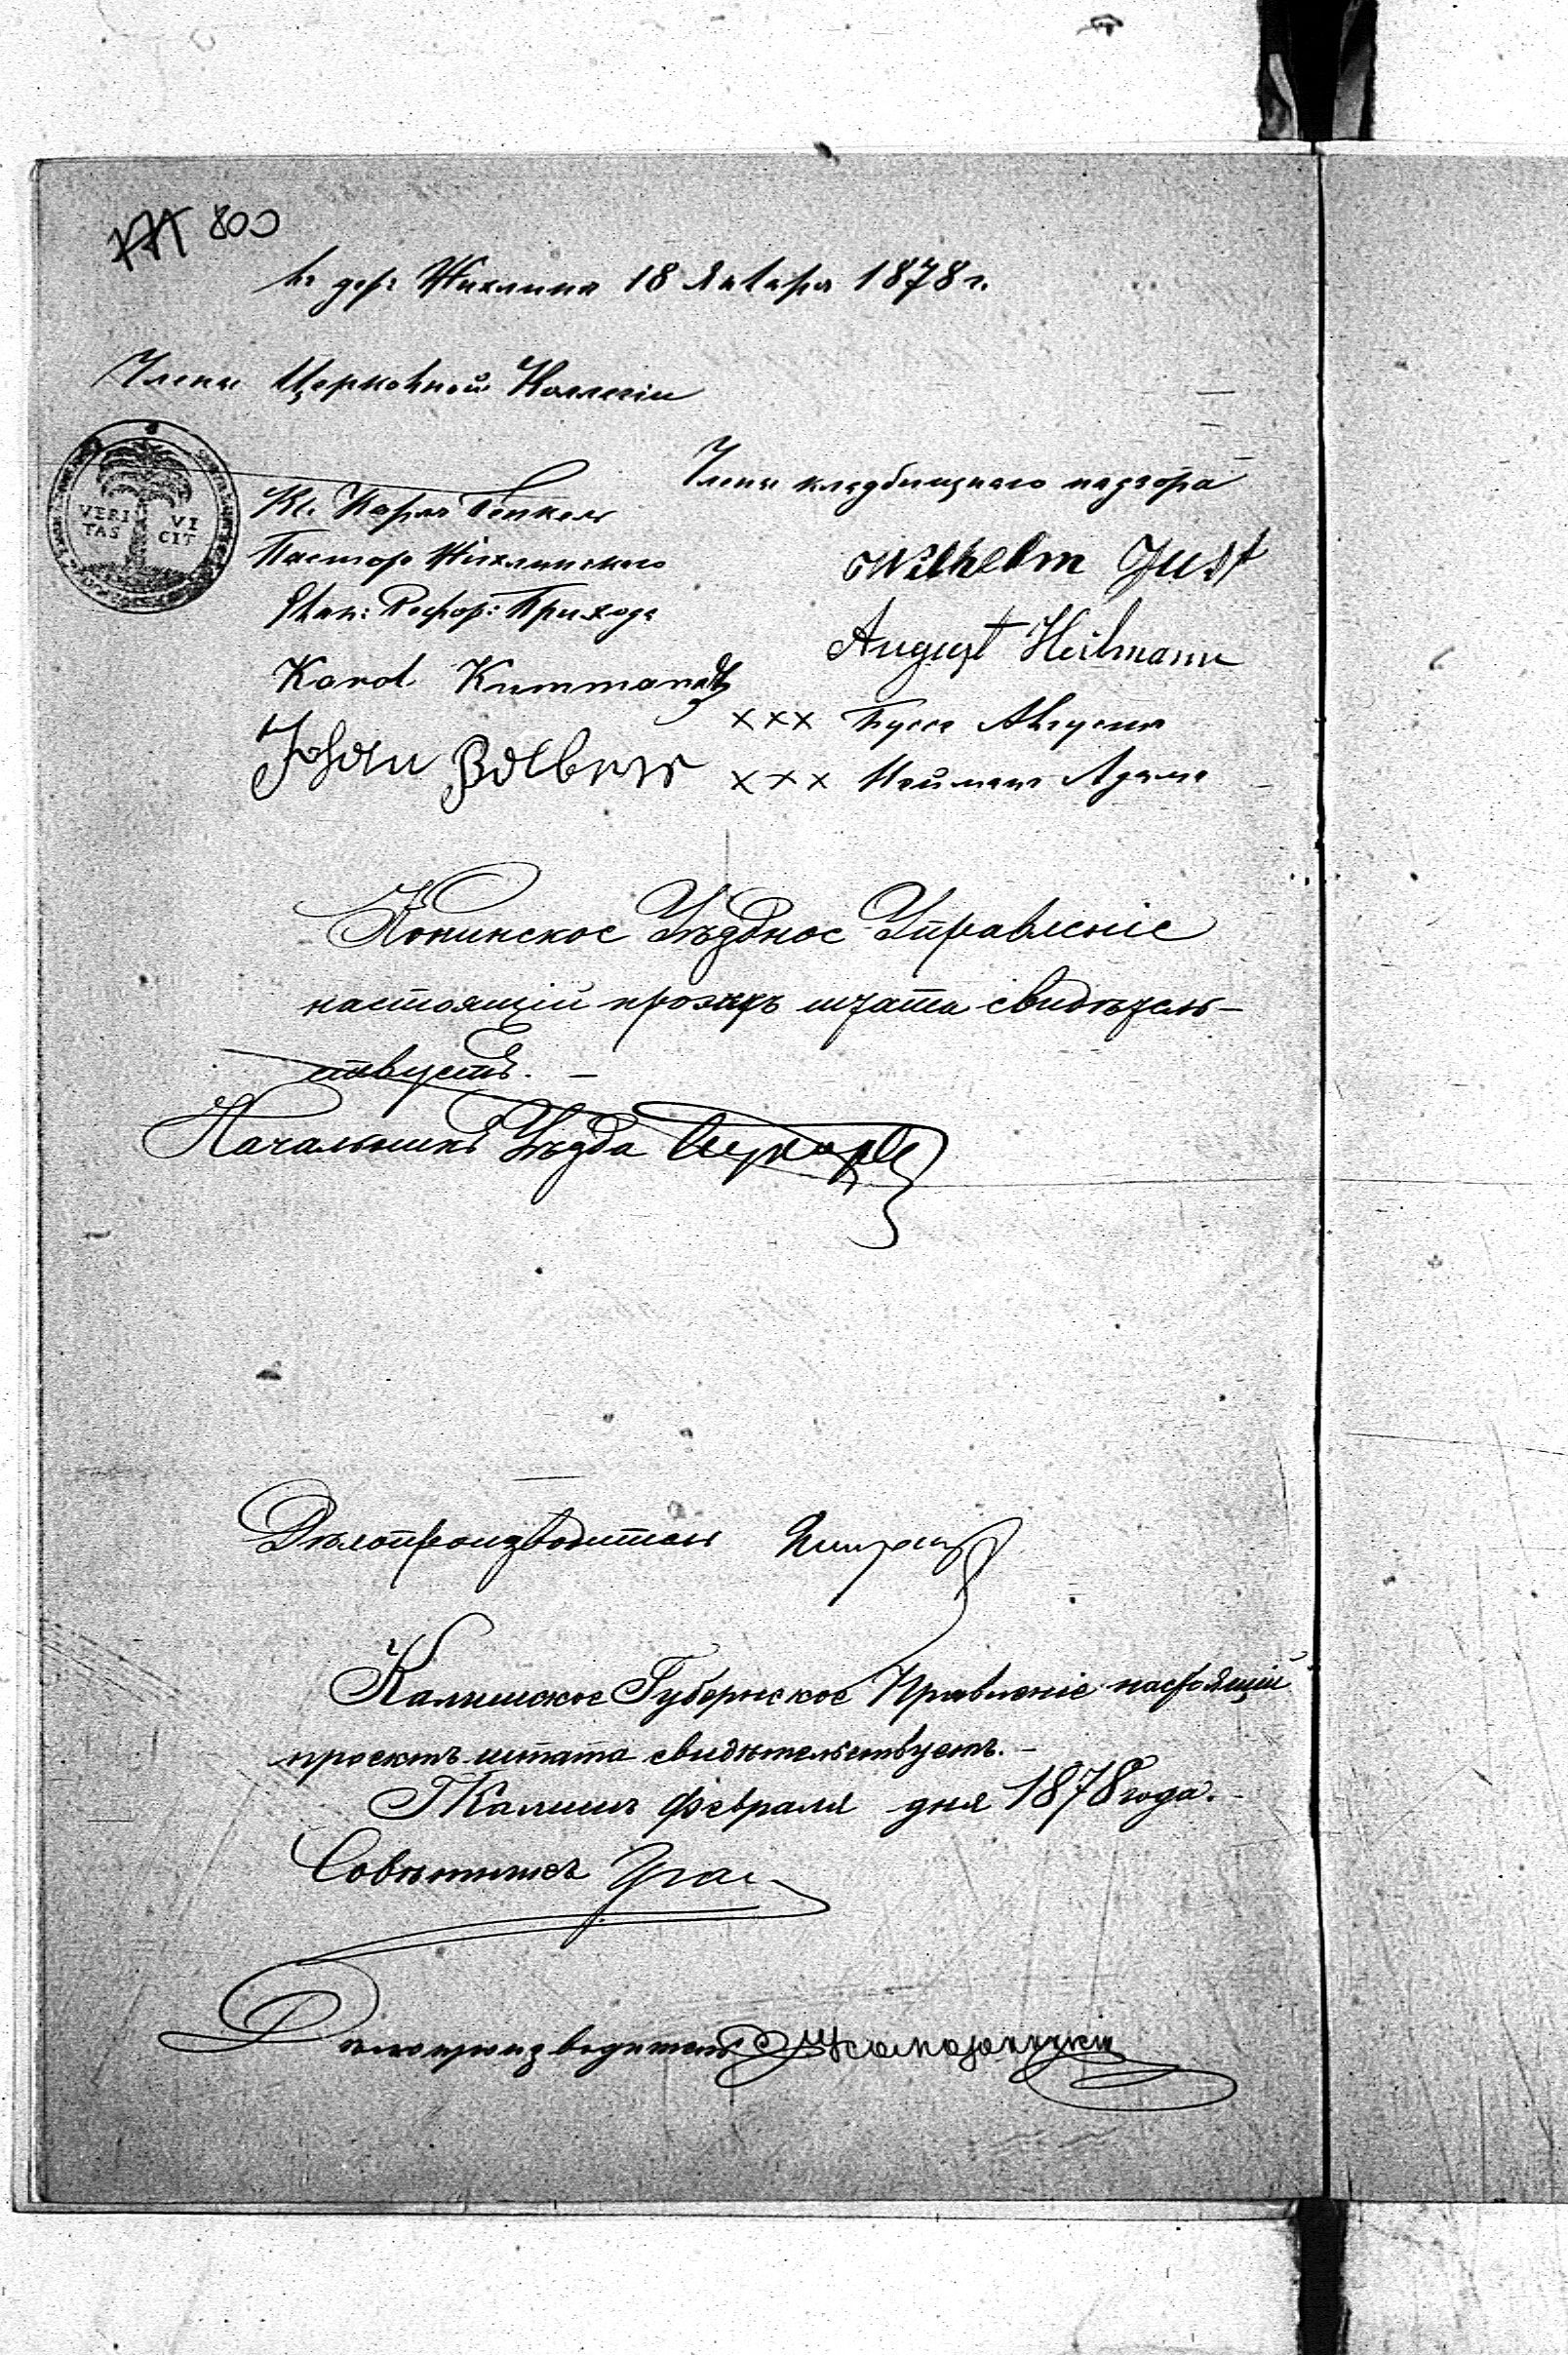 800
въ дер: Жихлинъ 18 Января 1878 г.
Члены Церковной Коллегіи
VERI VI
TAS CIT
Члены кладбищнаго надзора
Кс. Карлъ
Пасторъ Жихлинскаго
Еван: Рефор: Прихода
Karol
Johan
Wilhelm Just
August Heilmann
xxx Буссе Августъ
xxx Нейманъ Адамъ
Конинское Уѣздное Управленіе
настоящій проэктъ штата свидѣтель-
ствуетъ. –
Начальникъ Уѣзда
Дѣлопроизводитель
Калишское Губернское Правленіе настоящій
проектъ штата свидѣтельствуетъ. –
Г Калишъ Февраля дня 1878 года.
Совѣтникъ
Дѣлопроизводитель